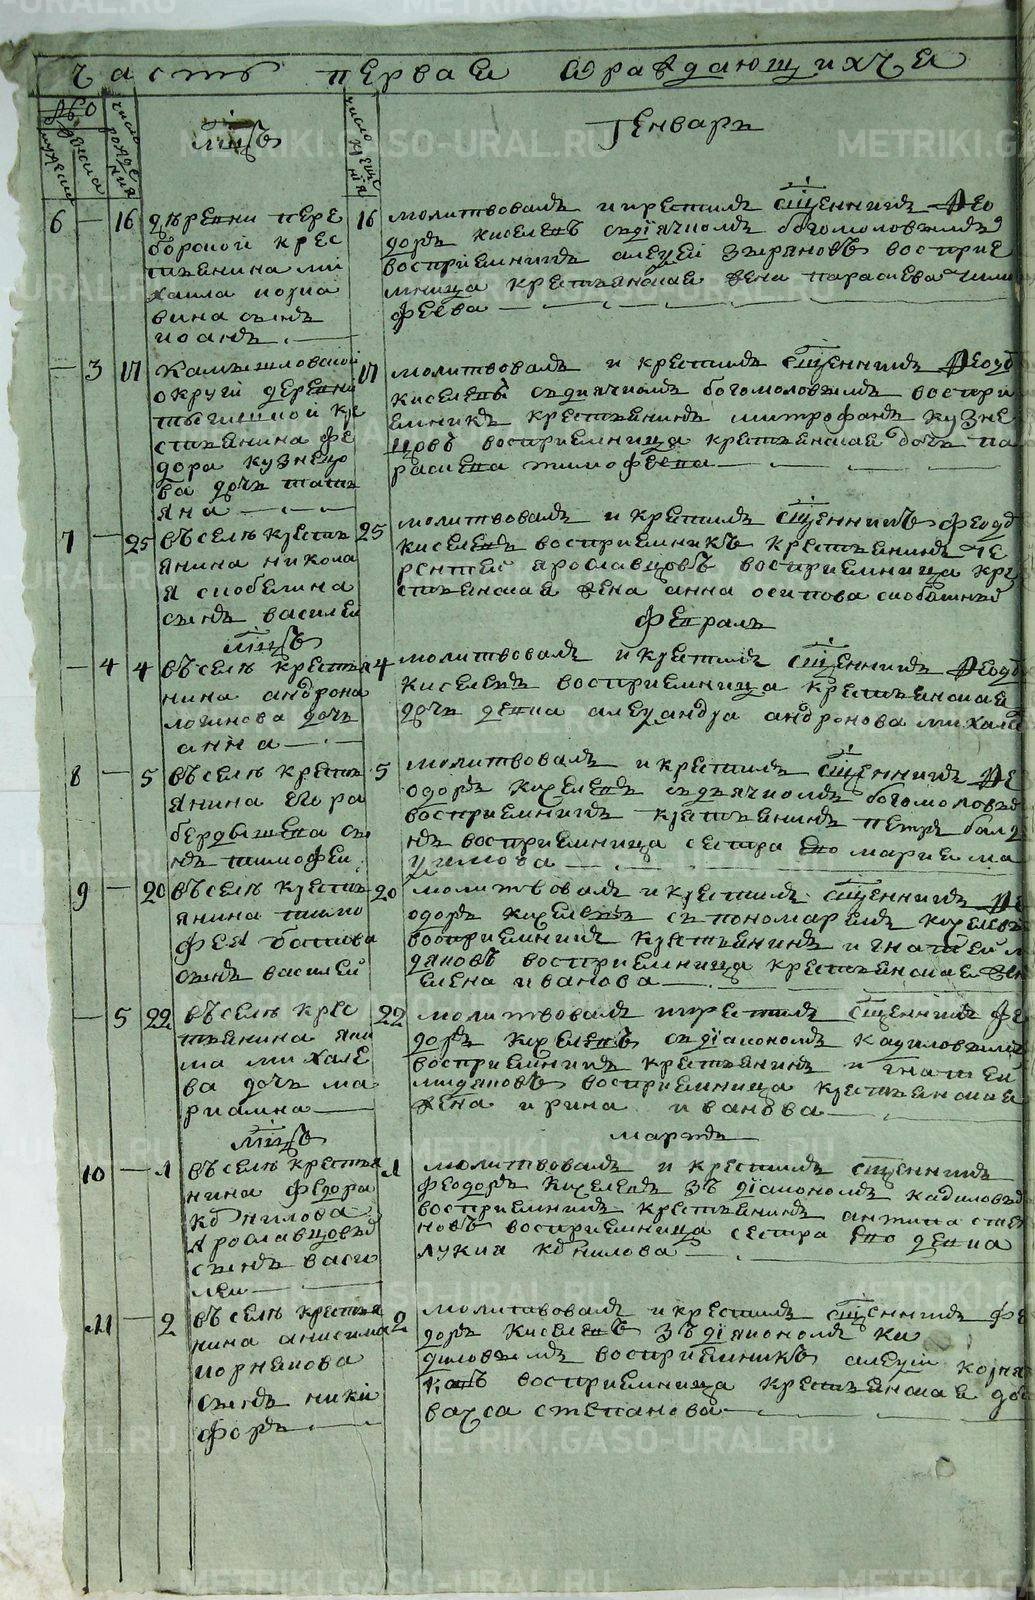 METRIKI.GASO-URAL.RU
часть первая ѡраждающихся
мцъ
Генварь
6 — 16 дѣревни пере
борской крес
тьянина ми
хаила
вина сынъ
иоанъ
16 молитвовалъ и крестилъ сщенникъ Фео
доръ киселевъ съ дiячкомъ богомоловымъ
восприемникъ алеѯей зыряновъ восприе
мница крестьянская жена параскева тимо
феева
— 3 17 Камышловской
округи деревни
крестьянина фе
дора кузнецо
ва дочь тать
яна
17 молитвовалъ и крестилъ сщенникъ Феодо
киселевъ съ диячкомъ богомоловымъ воспри
емникъ крестьянинъ митрофанъ кузне
цовъ восприемница крестьянская дочь па
раскева тимофеева
7 — 25 въ селѣ кресть
янина никола
я скобелина
сынъ василеи
25 молитвовалъ и крестилъ сщенникъ феодо
киселевъ восприемникъ крестьянинъ те
рентеи ярославцовъ восприемница кре
стьянская жена анна осипова скобелиныхъ
мцъ
февраль
— 4 4 въ селѣ крестья
нина андрона
логинова дочь
анна
4 молитвовалъ и крестилъ сщенникъ Феодо
киселевъ восприемница крестьянская
дочь девка алеѯандра андронова михале
8 — 5 въ селѣ кресть
янина егора
бердышева сы
нъ тимофеи
5 молитвовалъ и крестилъ сщенникъ Фе
одоръ киселевъ съ дьячкомъ богомоловы
восприемникъ крестьянинъ петръ балд
нъ восприемница сестра его мариема
9 — 20 въ селѣ кресть
янина тимо
фея
сынъ василей
20 молитвовалъ и крестилъ сщенникъ Фе
одоръ киселевъ съ пономаремъ киселевы
восприемникъ крестьянинъ игнатей м
дяковъ восприемница крестьянская жен
елена иванова
— 5 22 въ селѣ крес
тьянина яки
ма михале
ва дочь ма
риамна
22 молитвовалъ и крестилъ сщенникъ фе
доръ киселевъ съ дiакономъ кадиловымъ
восприемникъ крестьянинъ игнатей
восприемница крестьянская
жена ирина иванова
мцъ
мартъ
10 — 1 въ селѣ крестья
нина федора
корнилова
ярославцовыхъ
сынъ васи
леи
1 молитвовалъ и крестилъ сщенникъ
феодоръ киселевъ зъ дiакономъ кадиловы
восприемникъ крестьянинъ антипа степ
новъ восприемница сестра его девка
лукия корнилова
11 — 2 въ селѣ крестья
нина анисима
корнякова
сынъ ники
форъ
2 молитвовалъ и крестилъ сщенникъ фе
доръ киселевъ зъ дiякономъ ка
диловымъ восприемникъ алеѯiи корня
ковъ восприемница крестьянская доч
васса степанова